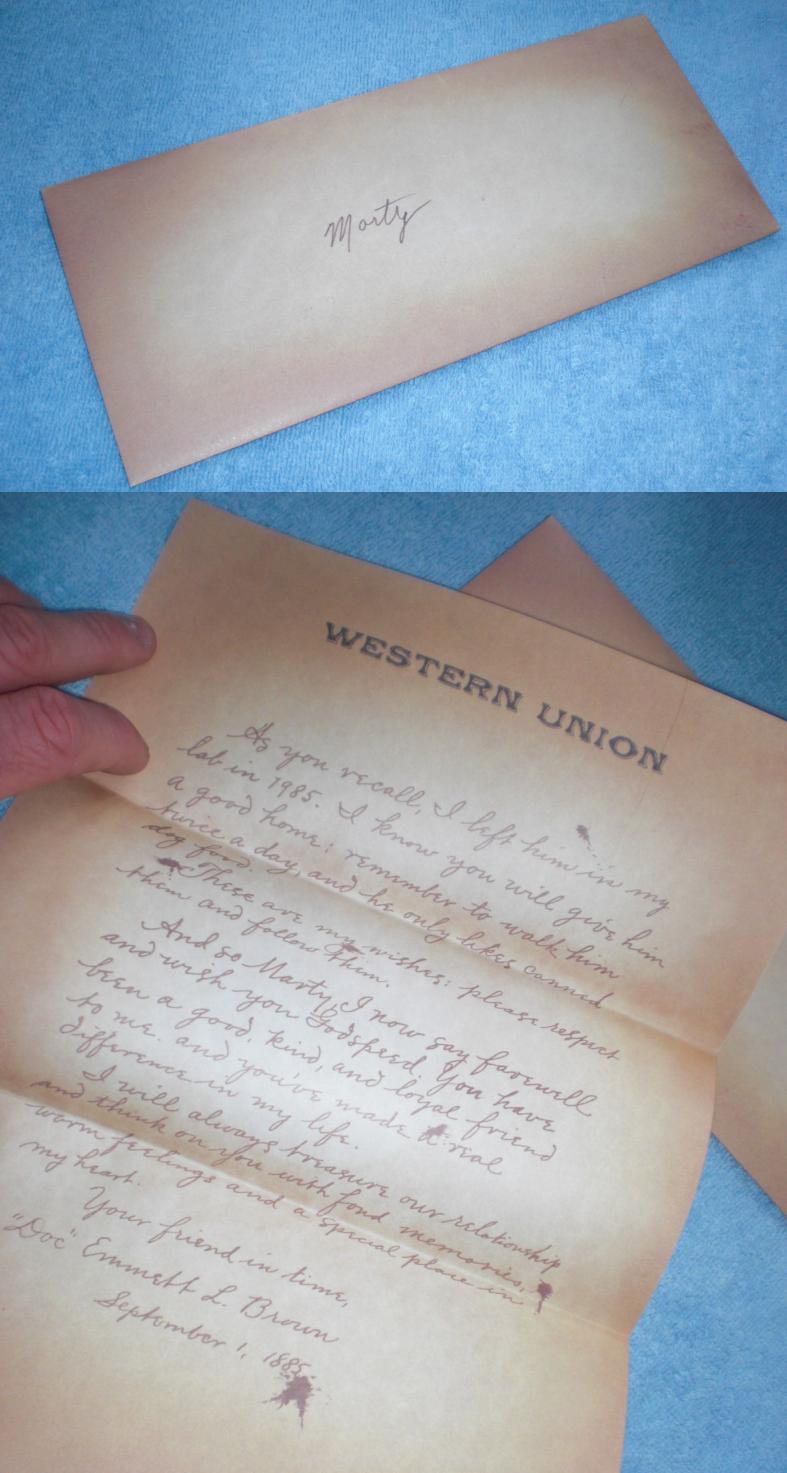 Marty
WESTERN UNION
As you recall, I left him in my
lab in 1985. I know you will give him
a good home; remember to walk him
twice a day, and he only likes canned
dog food.
These are my wishes: please respect
them and follow them.
And so Marty, I now say farewell
and wish you Godspeed. You have
been a good, kind, and loyal friend
to me. and you've made a real
difference in my life.
I will always treasure our relationship
and think on you with fond memories,
warm feelings and a special place in
my heart.
Your friend in time,
"Doc" Emmett L. Brown
September 1, 1885